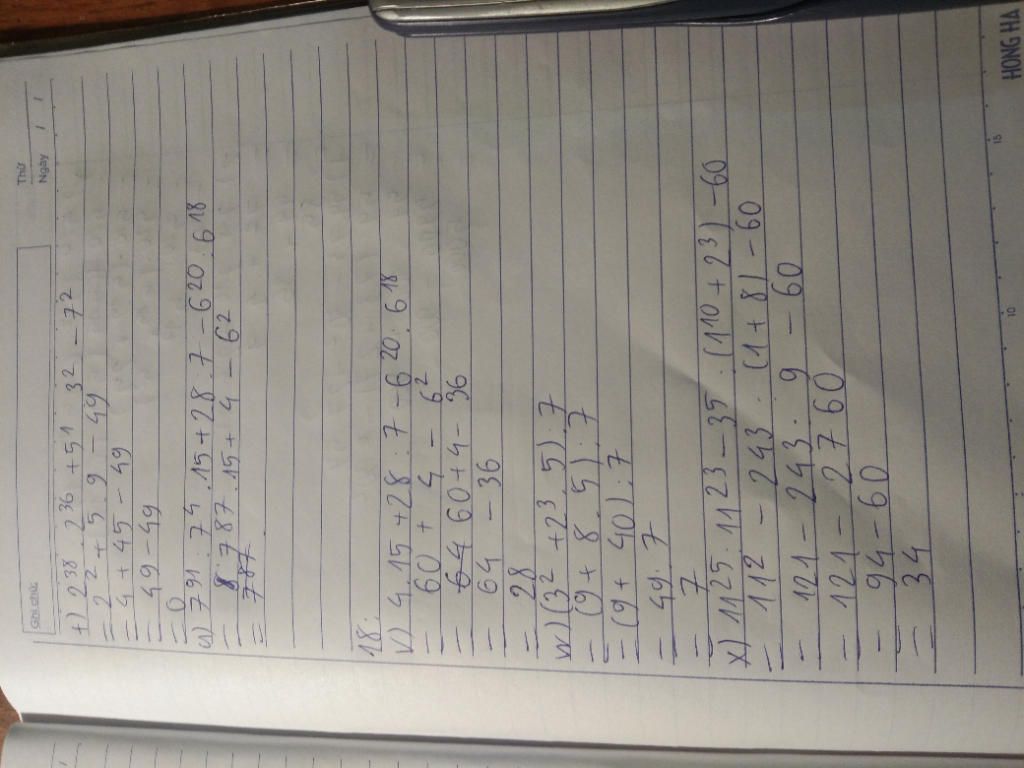 Ghi chú:
Thứ
Ngày / /
t) 2³⁸ : 2³⁶ + 5¹ . 3² - 7²
= 2² + 5 . 9 - 49
= 4 + 45 - 49
= 49 - 49
= 0
u) 7⁹¹ : 7⁴ .15 + 28 : 7 - 6²⁰ : 6¹⁸
= 7⁸⁷ .15 + 4 - 6²
= 787
18:
v) 4.15 + 28 : 7 - 6²⁰ : 6¹⁸
= 60 + 4 - 6²
= 64 60 + 4 - 36
= 64 - 36
= 28
w) (3² + 2³ . 5) : 7
= (9 + 8 . 5) : 7
= (9 + 40) : 7
= 49 : 7
= 7
x) 11²⁵ : 11²³ - 3⁵ : (1¹⁰ + 2³) - 60
= 11² - 243 : (1 + 8) - 60
= 121 - 243 : 9 - 60
= 121 - 27 60
= 94 - 60
= 34
10 15
HONG HA